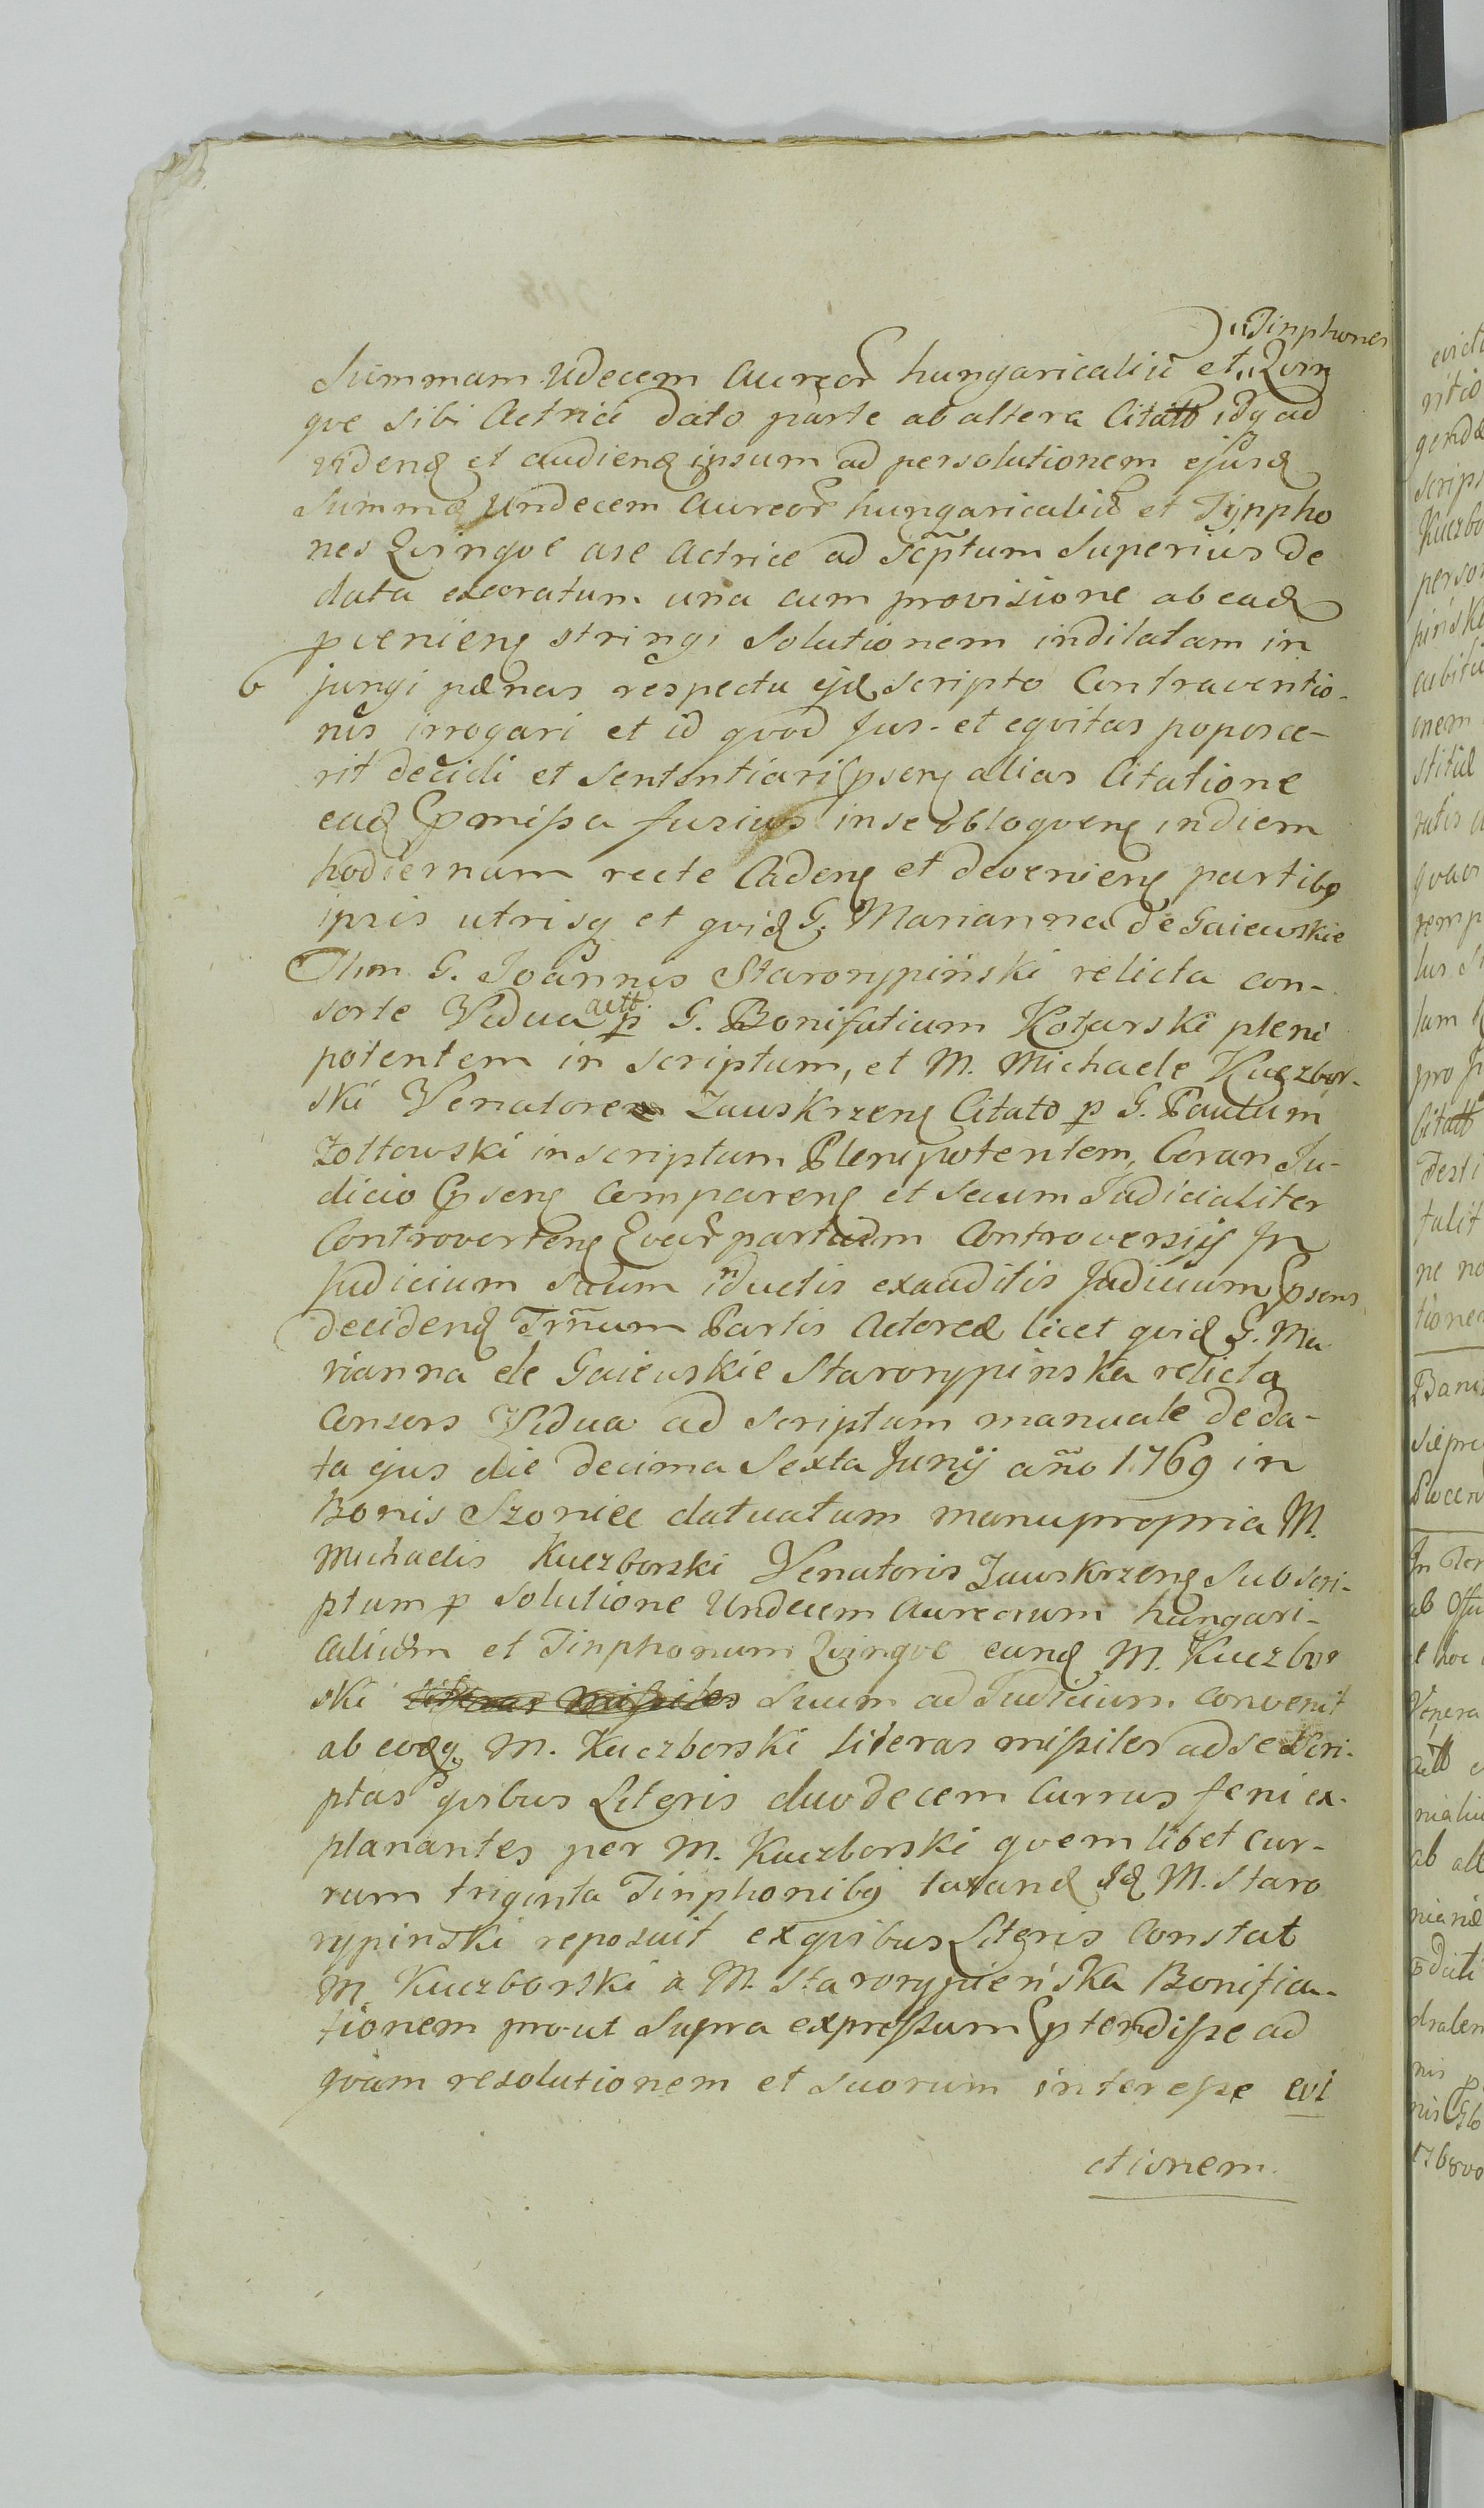 Tinphones
Summam Udecem Aureor hungaricaliũ et Qvin
qve sibi Actrici dato parte ab altera Citatt idq ad
videnđ et audienđ ipsum ad persolutionem ejusđ
Summæ Undecem Aureor hungaricaliũ et Tynpho
nes Qvinqve a se Actrice ad Scptum Superius de
data exaratum una cum provisione ab eađ
pvenienţ stringi Solutionem indilatam in
6 jungi pænas respectu ejđ scripto Contraventio-
nis irrogari et id qvod Jus et eqvitas poposce-
rit decidi et Sententiari psenţ alias Citatione
eađ pmissa fusius in se obloqvenţ in diem
hodiernam recte Cadenţ et devenienţ partibg
ipsis utrisq et qviđ G. Marianna de Gaiewskie
Olim G. Joannis Starorypiński relicta con-
sorte Vidua actt. p G. Bonifatium Kotarski pleni
potentem in scriptum, et M. Michaele Kuczbor-
ski Venatore Zawskrzenţ Citato p G. Paulum
Zołtowski in scriptum Plenipotentem, Coran Ju-
dicio psenţ Comparenţ et secum Judicialiter
Controvertenţ Qvar partium Controversiis In
Judicium Suum inductis exauditis Judicium psens
decidenđ Trm̃um Partis Actoreæ licet qviđ G. Ma-
rianna de Gaiewskie Starorypinska relicta
Consors Vidua ad scriptum manuale de da-
ta ejus die decima Sexta Junij año 1769 in
Bonis Szonice datuatum manu propria M.
Michaelis Kuczborski Venatoris Zawskrzenţ Subscri-
ptum p Solutione Undecem Aureorum hungari-
calium et Tinphonum Qvinqve eunđ M. Kuczbor
ski literas missiles Suum ad Judicium convenit
ab eođq M. Kuczborski literas missiles ad se Scri-
ptas qvibus Literis duodecem Currus feni ex-
planantes per M. Kuczborski qvemlibet cur-
rum triginta Tinphonibg taxanđ Iđ M. Staro
rypinski reposuit ex qvibus Literis Constat
M. Kuczborski a M. Starorypieńska Bonifica-
tionem prout Supra expressum ptendisse ad
qvam resolutionem et suorum interesse evi
ctionem.